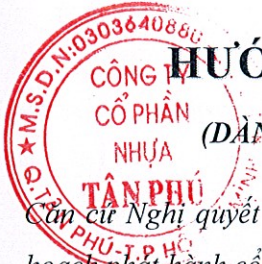 M.S.D.N:0303640880
CÔNG TY
CỔ PHẦN
NHỰA
TÂN PHÚ
Q.TÂN PHÚ-T.P HỒ
HƯỚ
(DÀN
Căn cứ Nghị quyết
hoạch phát hành cổ